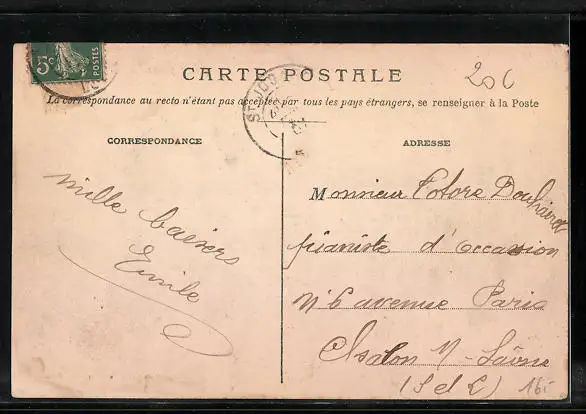 5c
POSTES
CARTE POSTALE
20€
La correspondance au recto n'étant pas acceptée par tous les pays étrangers, se renseigner à la Poste
CORRESPONDANCE
mille baisers
Emile
ADRESSE
Monsieur Totore
pianiste d'occasion
N° 6 avenue Paris
Chalon s/ Saône
(S et L)